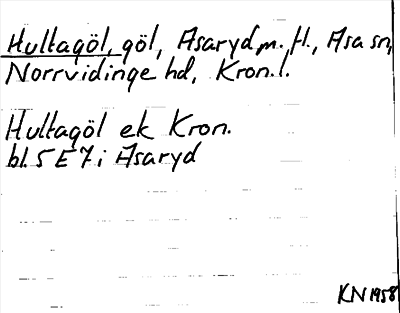 Hultagöl, göl, Asaryd m. fl., Asa sn,
Norrvidinge hd, Kron. l.
Hultagöl ek Kron.
bl. 5 E 7 i Asaryd
KN 1958